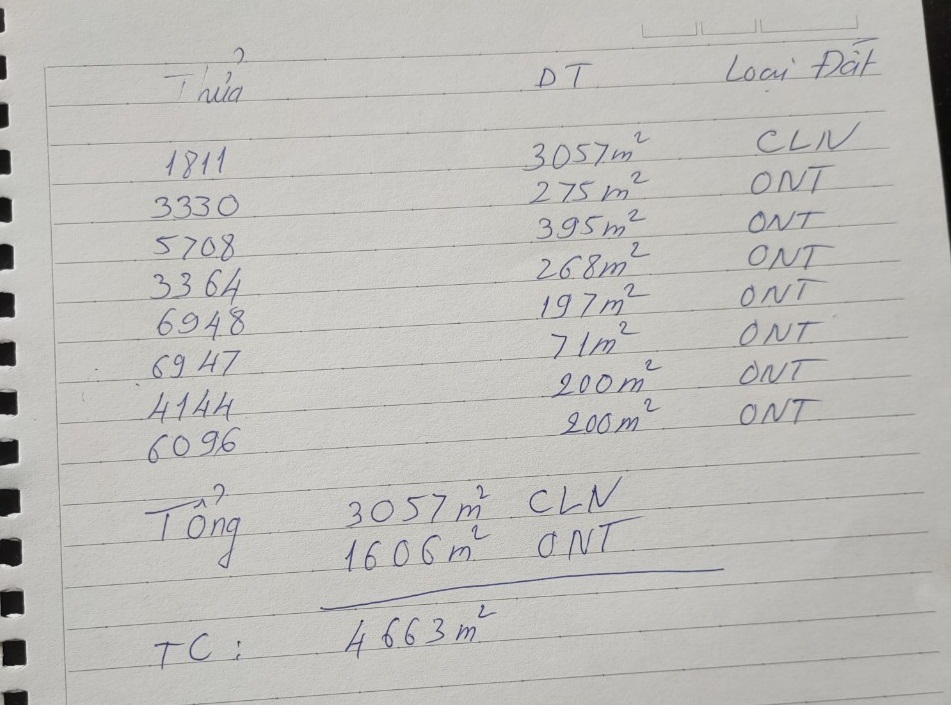 Thửa DT Loại Đất
1811 3057m² CLN
3330 275m² ONT
5708 395m² ONT
3364 268m² ONT
6948 197m² ONT
6947 71m² ONT
4144 200m² ONT
6096 200m² ONT
Tổng 3057m² CLN
1606m² ONT
TC: 4663m²